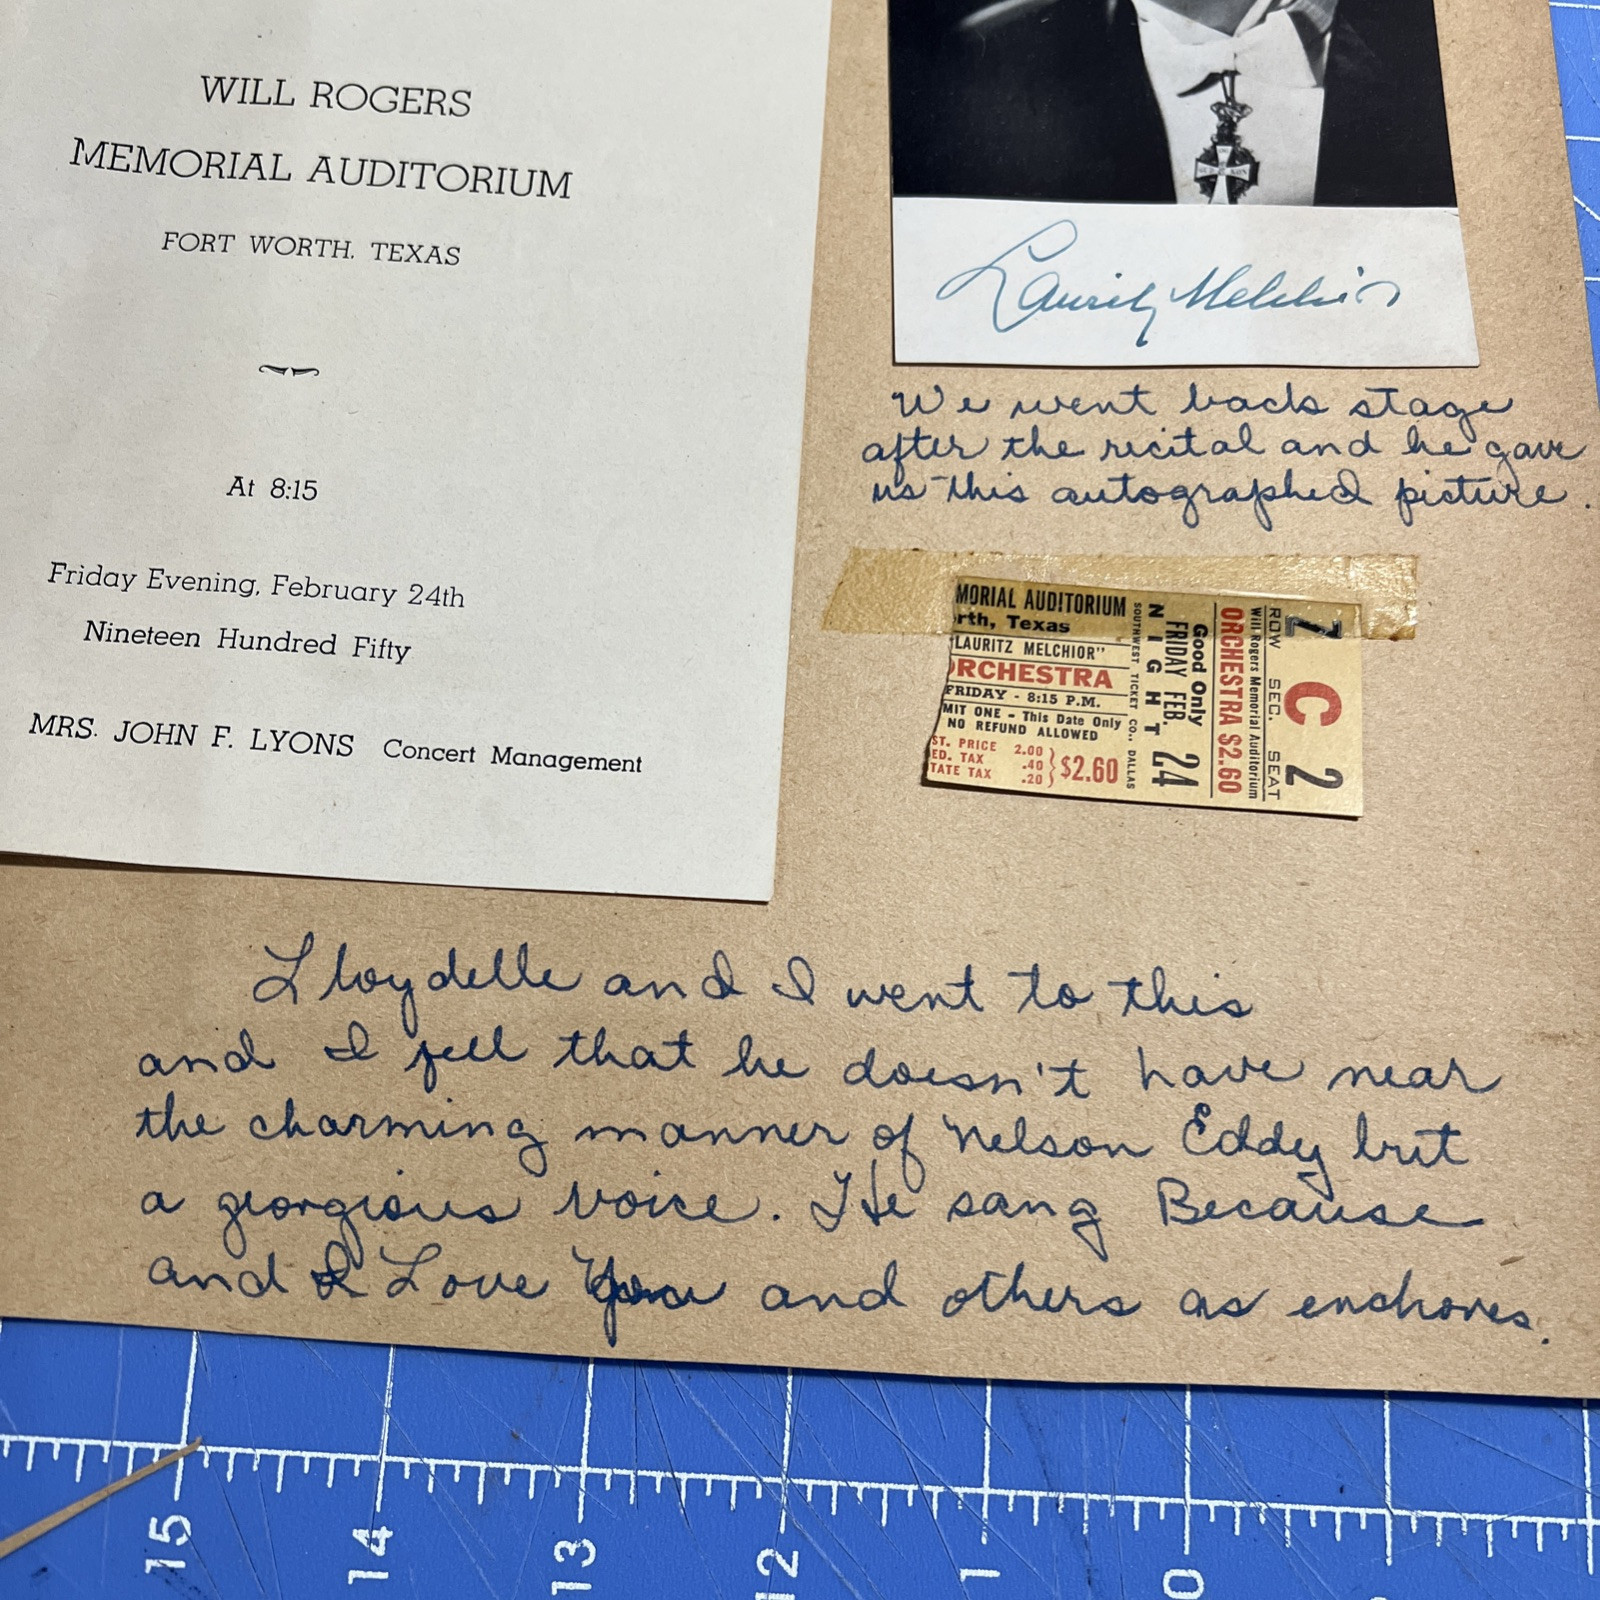 WILL ROGERS
MEMORIAL AUDITORIUM
FORT WORTH, TEXAS
At 8:15
Friday Evening, February 24th
Nineteen Hundred Fifty
MRS. JOHN F. LYONS Concert Management
Lauritz Melchior
We went back stage
after the recital and he gave
us this autographed picture.
MORIAL AUDITORIUM
rth, Texas
LAURITZ MELCHIOR"
ORCHESTRA
FRIDAY - 8:15 P.M.
MIT ONE - This Date Only
NO REFUND ALLOWED
ST. PRICE 2.00
ED. TAX .40
TATE TAX .20
$2.60
SOUTHWEST TICKET CO., DALLAS
NIGHT
FRIDAY FEB. 24
Good Only
ORCHESTRA $2.60
Will Rogers Memorial Auditorium
ROW SEC. SEAT
Z C 2
Lloydelle and I went to this
and I fell that he doesn't have near
the charming manner of Nelson Eddy but
a georgious voice. He sang Because
and I Love You and others as enchores.
15 14 13 12 11 10